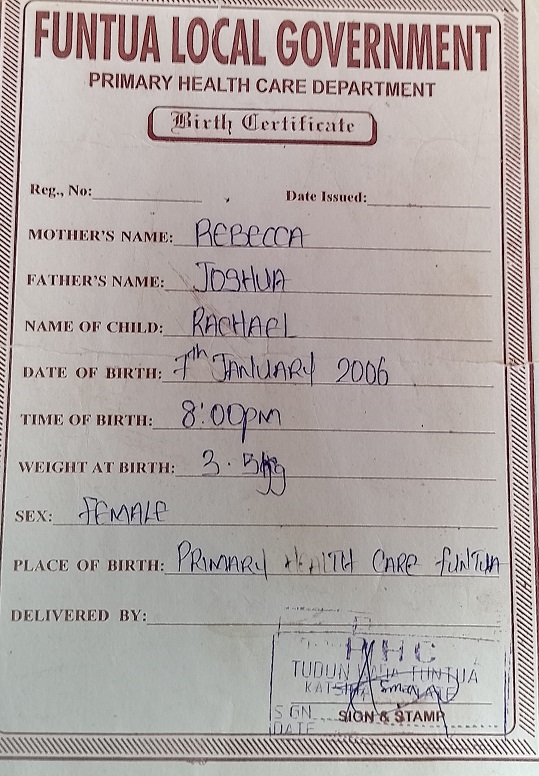 FUNTUA LOCAL GOVERNMENT
PRIMARY HEALTH CARE DEPARTMENT
Birth Certificate
Reg., No: Date Issued:
MOTHER'S NAME: REBECCA
FATHER'S NAME: JOSHUA
NAME OF CHILD: RACHAEL
DATE OF BIRTH: 7th JANUARY 2006
TIME OF BIRTH: 8:00pm
WEIGHT AT BIRTH: 3.5kg
SEX: FEMALE
PLACE OF BIRTH: PRIMARY HEALTH CARE FUNTUA
DELIVERED BY:
TUDUN FUNTUA
SIGN & STAMP
DATE